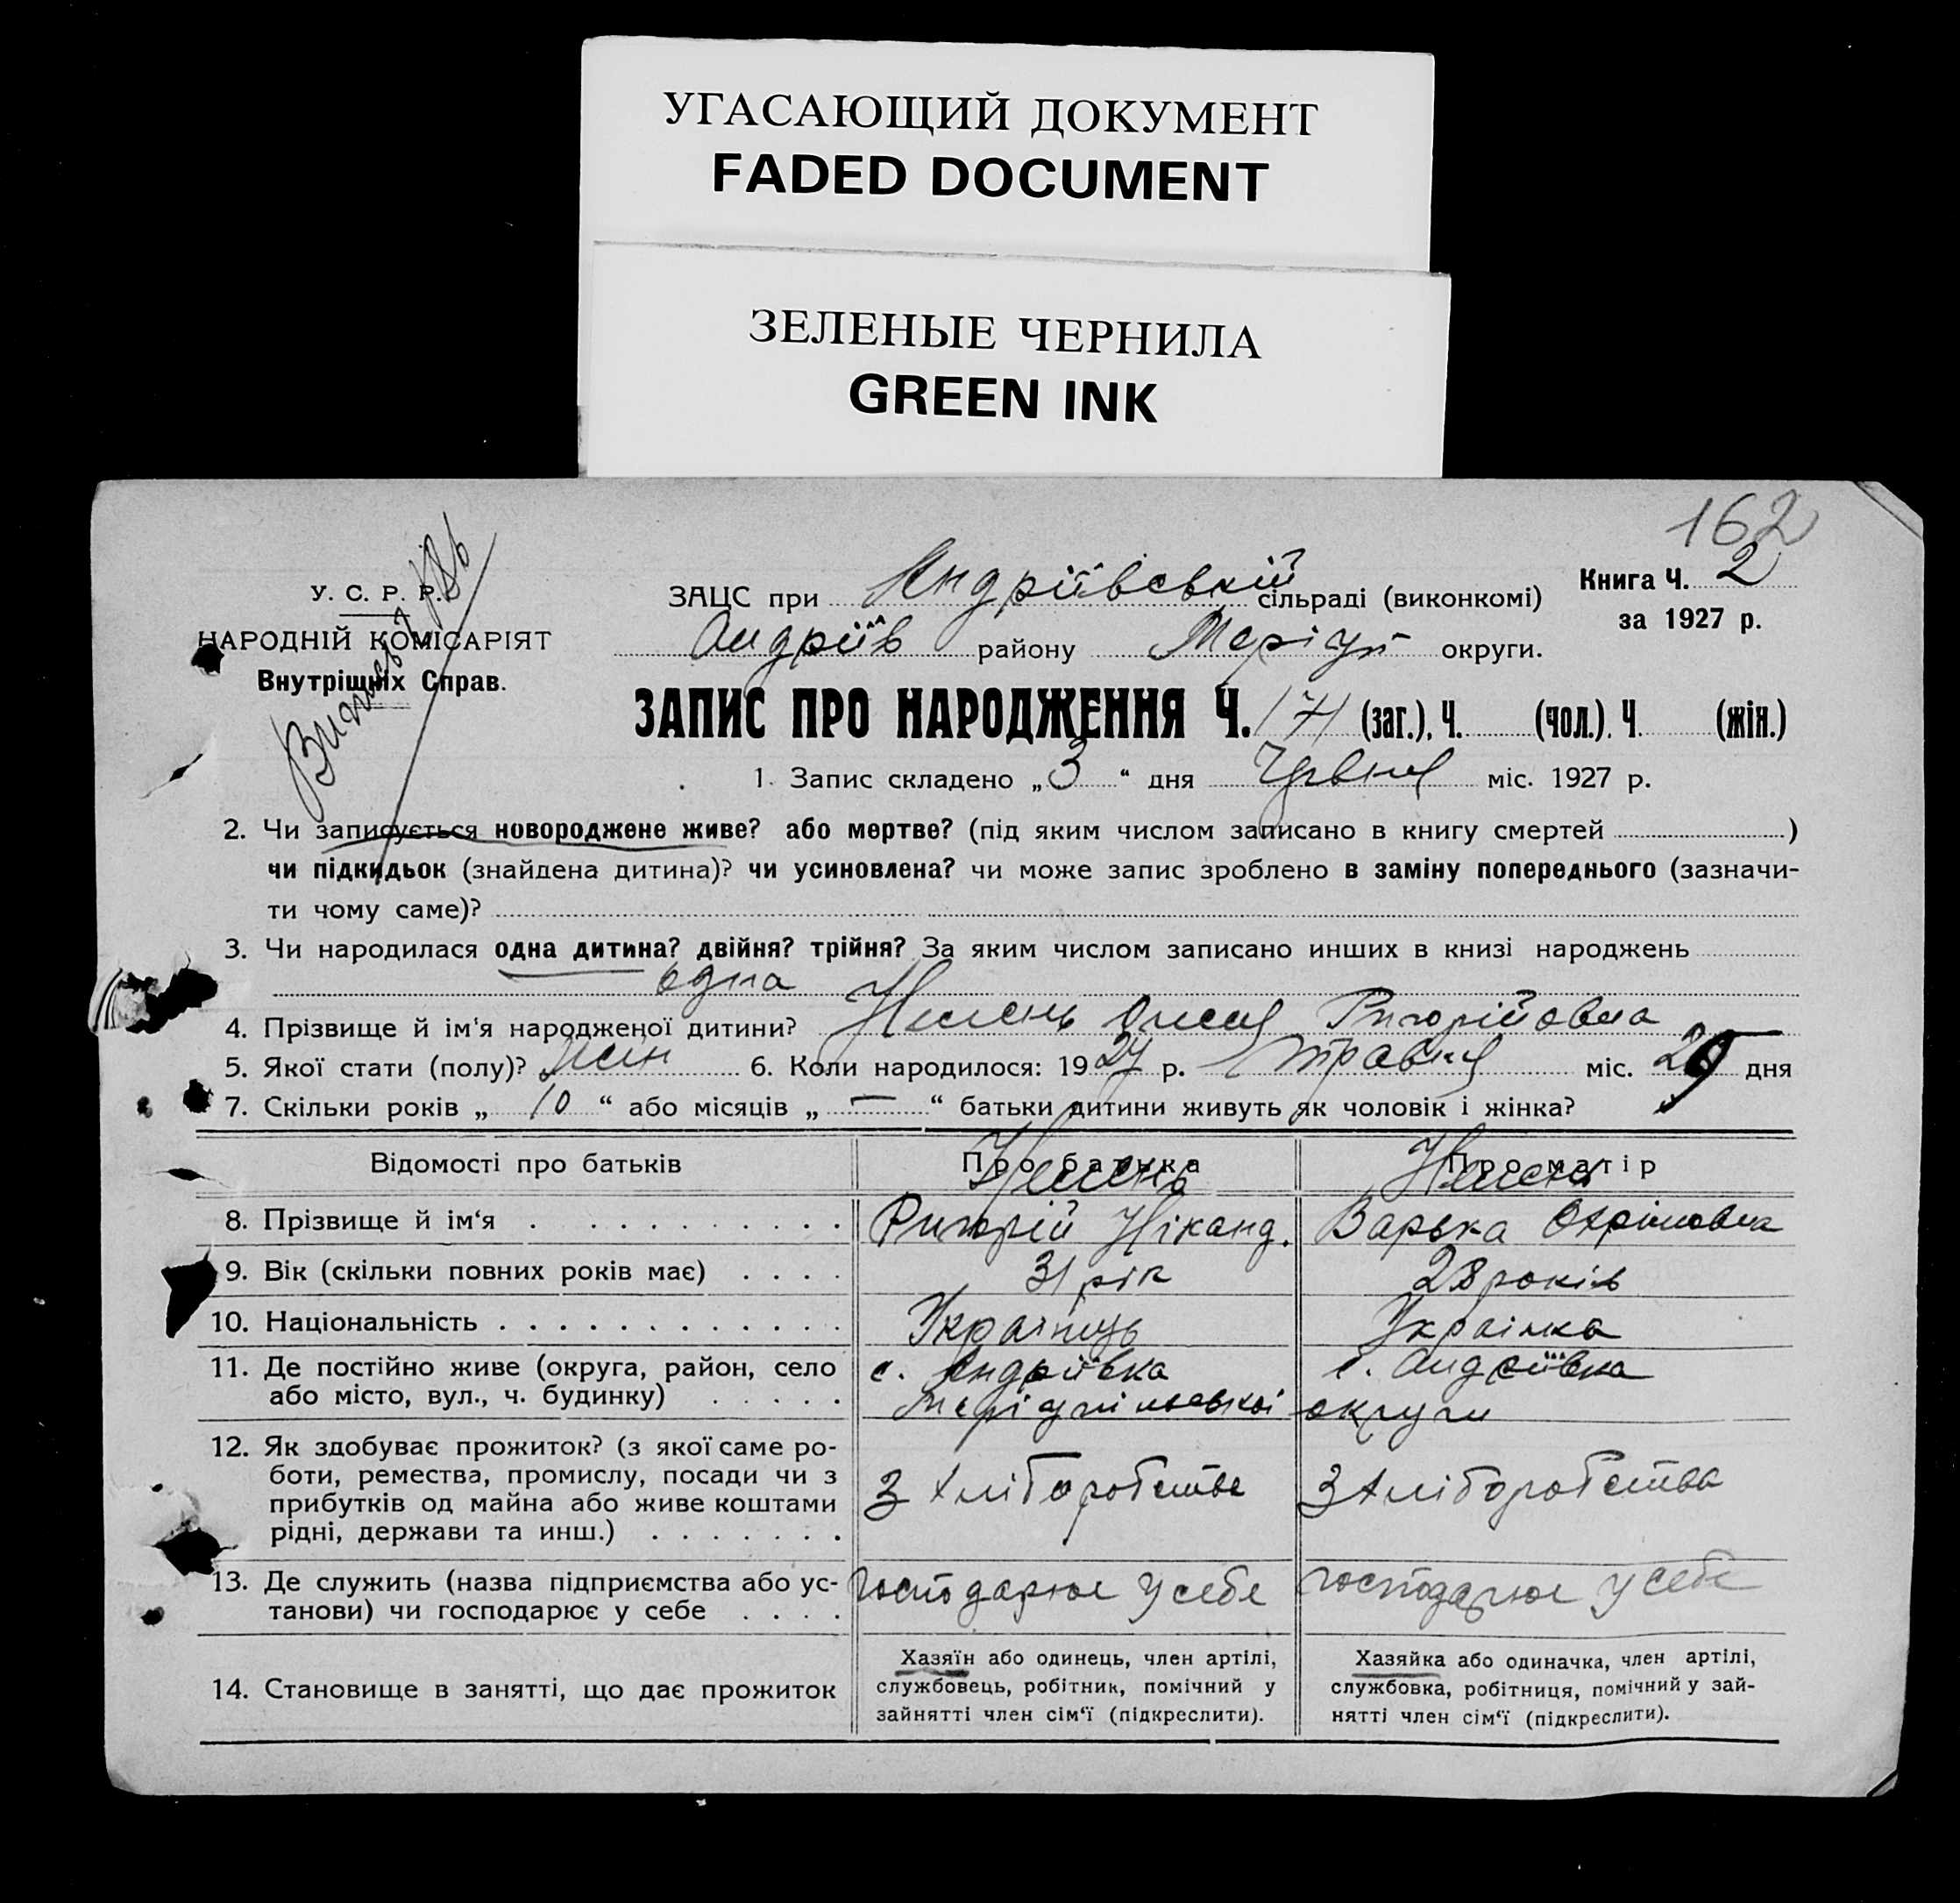 УГАСАЮЩИЙ ДОКУМЕНТ
FADED DOCUMENT
ЗЕЛЕНЫЕ ЧЕРНИЛА
GREEN INK
162
У. С. Р. Р.
НАРОДНІЙ КОМІСАРІЯТ
Внутрішніх Справ.
ЗАЦС при Андріївській сільраді (виконкомі)
Андріїв району Маріуп округи.
Книга Ч. 2
за 1927 р.
ЗАПИС ПРО НАРОДЖЕННЯ Ч. 171 (заг.), Ч. (чол.). Ч. (жін.)
1. Запис складено „3“ дня Червня міс. 1927 р.
2. Чи записується новороджене живе? або мертве? (під яким числом записано в книгу смертей )
чи підкидьок (знайдена дитина)? чи усиновлена? чи може запис зроблено в заміну попереднього (зазначи-
ти чому саме)?
3. Чи народилася одна дитина? двійня? трійня? За яким числом записано инших в книзі народжень
одна
4. Прізвище й ім‘я народженої дитини? Ригорійовна
5. Якої стати (полу)? жін 6. Коли народилося: 1927 р. травня міс. дня
7. Скільки років „ 10 “ або місяців „ — “ батьки дитини живуть як чоловік і жінка?
Відомості про батьків Про батька Про матір
8. Прізвище й ім‘я Ригорій Ніканд. Варька Охрімовна
9. Вік (скільки повних років має) 31 рік 28 років
10. Національність Українць Українка
11. Де постійно живе (округа, район, село с. Андріївка с. Андріївка
або місто, вул., ч. будинку) Маріупільської округи
12. Як здобуває прожиток? (з якої саме ро-
боти, ремества, промислу, посади чи з З хліборобства З хліборобства
прибутків од майна або живе коштами
рідні, держави та инш.)
13. Де служить (назва підприємства або ус- господарює у себе господарює у себе
танови) чи господарює у себе
14. Становище в занятті, що дає прожиток
Хазяїн або одинець, член артілі,
службовець, робітник, помічний у
зайнятті член сім‘ї (підкреслити).
Хазяйка або одиначка, член артілі,
службовка, робітниця, помічний у зай-
нятті член сім‘ї (підкреслити).